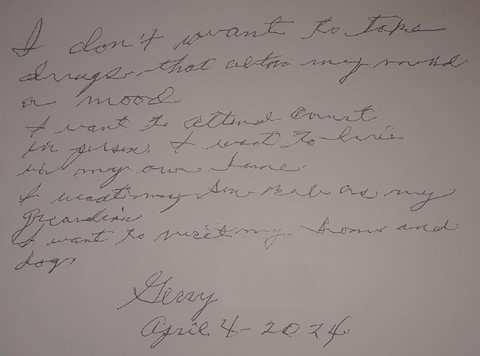 I don't want to take
drugs that alter my mind
or mood
I want to attend Court
in person. I want to live
in my own home.
I want my Son as my
Guardian
I want to visit my home and
dog
Gerry
April 4-2024